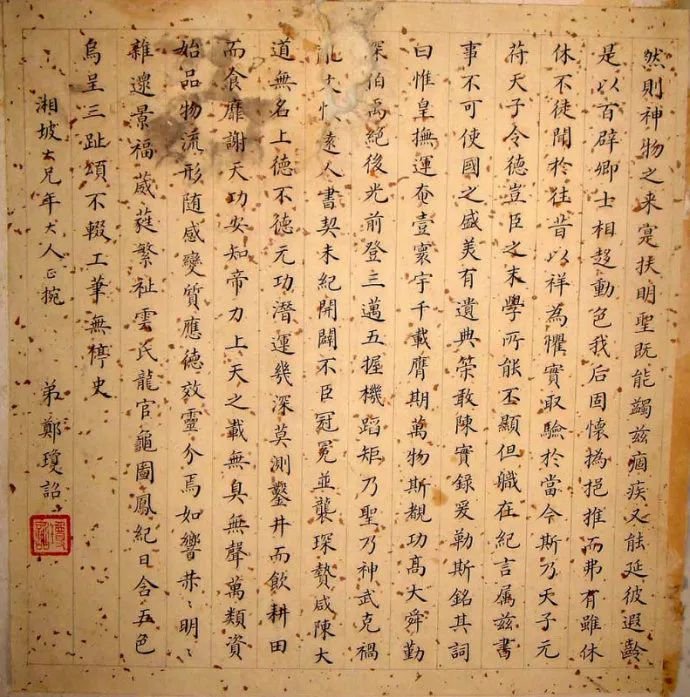 然則神物之来寔扶明聖既能蠲兹痼疾又能延彼遐齡
是以百辟卿士相趍動色我后固懷撝挹推而弗有雖休
休不徒聞於往昔以祥為懼實取驗於當今斯乃天子元
苻天子令德豈臣之末學所能丕顯但軄在紀言属兹書
事不可使國之盛美有遺典䇿敢陳實錄爰勒斯銘其詞
曰惟皇撫運奄壹寰宇千載膺期萬物斯覩功髙大舜勤
深伯禹絕後光前登三邁五握機蹈矩乃聖乃神武克禍
文遠人書契未紀開闢不臣冠冕並襲琛贄咸陳大
道無名上德不德元功潛運幾深莫測鑿井而飲耕田
而食靡謝天功安知帝力上天之載無臭無聲萬類資
始品物流形随感變質應德效靈介焉如響赫〻明〻
雜遝景福葳蕤繁祉雲氏龍官龜圖鳳紀日含五色
烏呈三趾頌不輟工筆無停史
湘坡大兄年大人正捥 弟鄭瓊詔